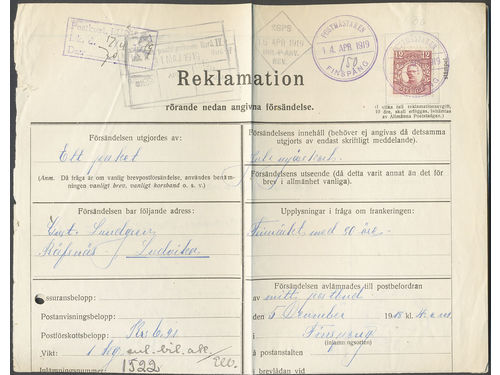 KGPS
15 APR 1919
REV.
POSTMÄSTAREN
14 APR 1919
FINSPÅNG
12
Reklamation
rörande nedan angivna försändelse.
10 öre, skall erläggas, inhämtas
av Allmänna Poststadgan.)
Försändelsen utgjordes av:
Ett paket
(Anm. Då fråga är om vanlig brevpostförsändelse, användes benäm-
ningen vanligt brev, vanligt korsband o. s. v.)
Försändelsens innehåll (behöver ej angivas då detsamma
utgjorts av endast skriftligt meddelande).
Försändelsens utseende (då detta varit annat än det för
brev i allmänhet vanliga).
Försändelsen bar följande adress:
Lundgren
Ludvika
Upplysningar i fråga om frankeringen:
Frimärkt med 90 öre
ssuransbelopp:
Postanvisningsbelopp:
Postförskottsbelopp: Krs 6.21
Vikt: 1 kg
Inlämningsnummer: 1522
Försändelsen avlämnades till postbefordran
av mitt postbud
den 5 December 1918 kl.
i Finspong
(inlämningsorten)
å postanstalten
brevlådan vid